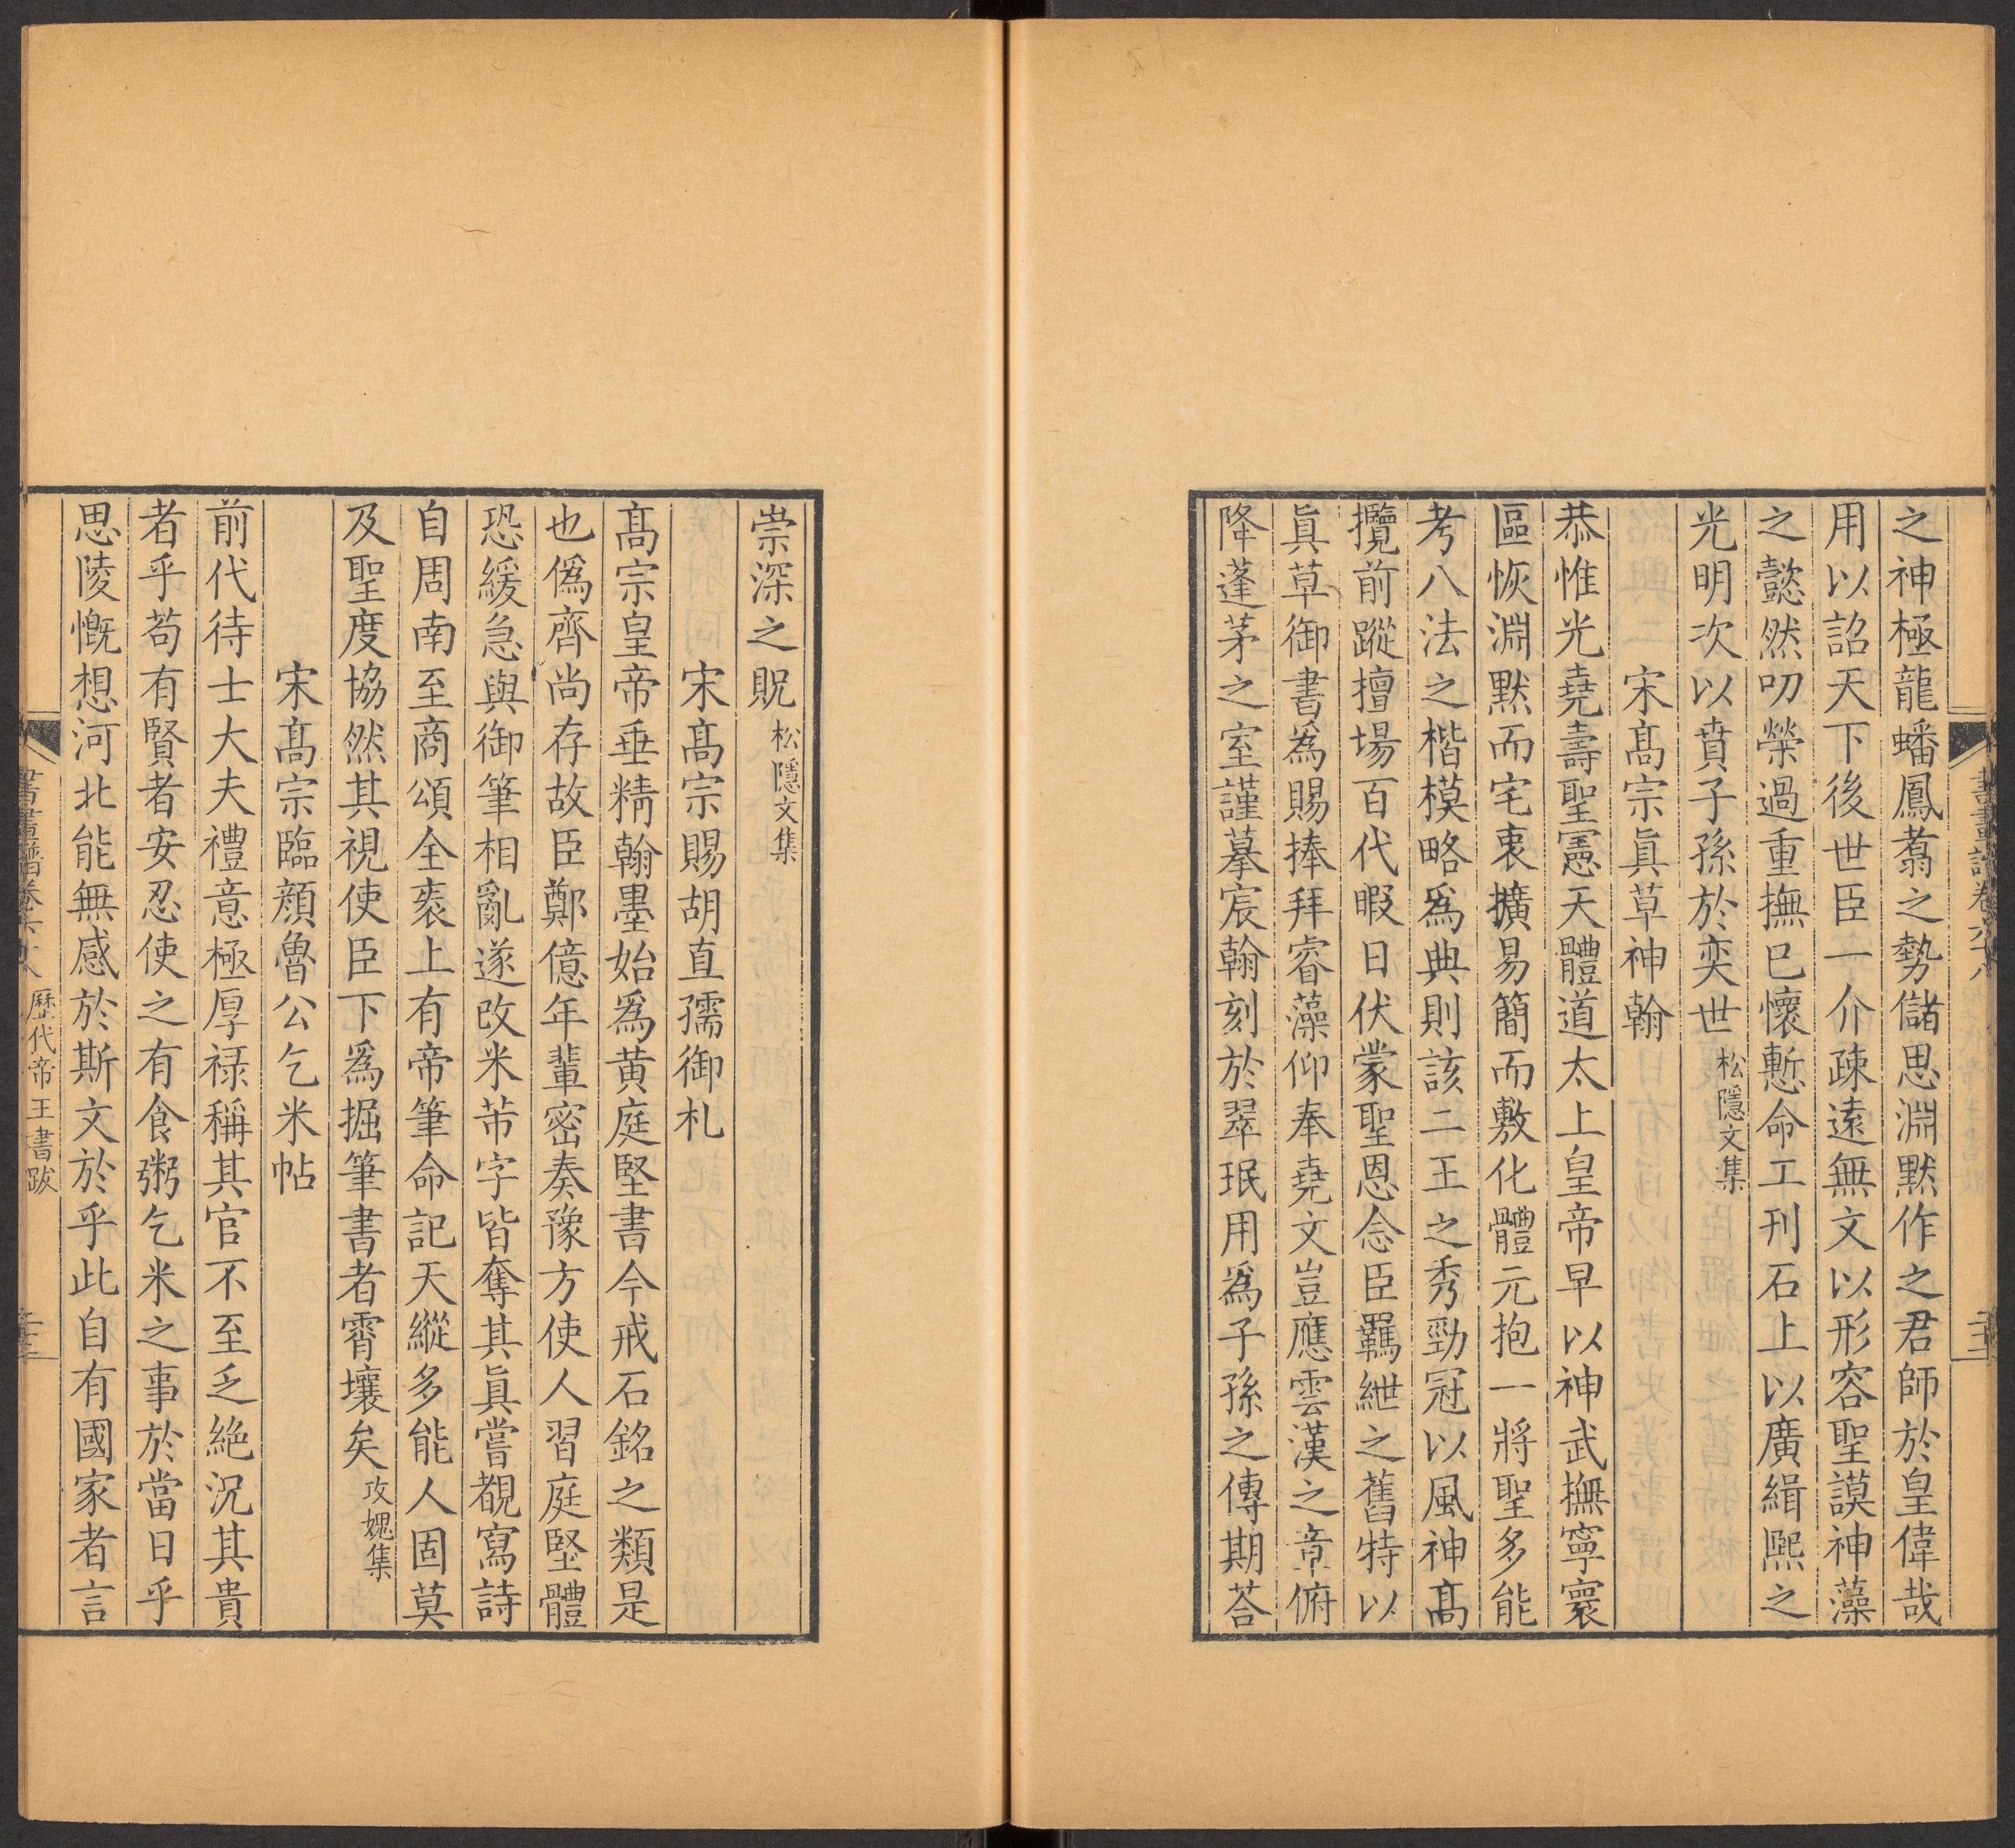 之神極龍蟠鳳翥之勢儲思淵黙作之君師於皇偉哉
用以詔天下後世臣一介疎遠無文以形容聖謨神藻
之懿然叨榮過重撫已懷慙命工刊石上以廣緝熙之
光明次以賁子孫於奕世松隱文集
宋髙宗真草神翰
恭惟光堯壽聖憲天體道太上皇帝早以神武撫寧寰
區恢淵黙而宅衷擴易簡而敷化體元抱一將聖多能
考八法之楷模略為典則該二王之秀勁冠以風神髙
攬前蹤擅場百代暇日伏蒙聖恩念臣羈紲之舊特以
真草御書為賜捧拜睿藻仰奉堯文豈應雲漢之章俯
降蓬茅之室謹摹宸翰刻於翠珉用為子孫之傳期荅
崇深之貺松隱文集
宋髙宗賜胡直孺御札
髙宗皇帝垂精翰墨始為黄庭堅書今戒石銘之類是
也偽齊尚存故臣鄭億年輩密奏豫方使人習庭堅體
恐緩急與御筆相亂遂改米芾字皆奪其真嘗覩寫詩
自周南至商頌全袠上有帝筆命記天縱多能人固莫
及聖度協然其視使臣下為掘筆書者霄壤矣攻媿集
宋髙宗臨顔魯公乞米帖
前代待士大夫禮意極厚禄稱其官不至乏絶況其貴
者乎苟有賢者安忍使之有食粥乞米之事於當日乎
思陵慨想河北能無感於斯文於乎此自有國家者言
歷代帝王書跋